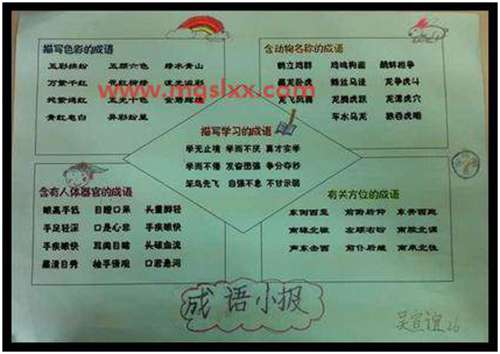 描写色彩的成语
五彩缤纷 五颜六色 绿水青山
万紫千红 花红柳绿 流光溢彩
姹紫嫣红 五光十色 金碧辉煌
青红皂白 异彩纷呈
含动物名称的成语
鹤立鸡群 鸡鸣狗盗 鹬蚌相争
藏龙卧虎 蛛丝马迹 龙争虎斗
龙飞凤舞 龙腾虎跃 龙潭虎穴
车水马龙 狼吞虎咽
www.mgslxx.com
描写学习的成语
学无止境 学而不厌 真才实学
学而不倦 发奋图强 争分夺秒
笨鸟先飞 自强不息 不甘示弱
含有人体器官的成语
眼高手低 目瞪口呆 头重脚轻
手足轻深 口是心非 手疾眼快
手疾眼快 耳闻目睹 头破血流
眉清目秀 袖手旁观 口若悬河
有关方位的成语
东倒西歪 前俯后仰 东奔西跑
南辕北辙 左顾右盼 南腔北调
声东击西 前仆后继 南来北往
成语小报
吴宣谊 26